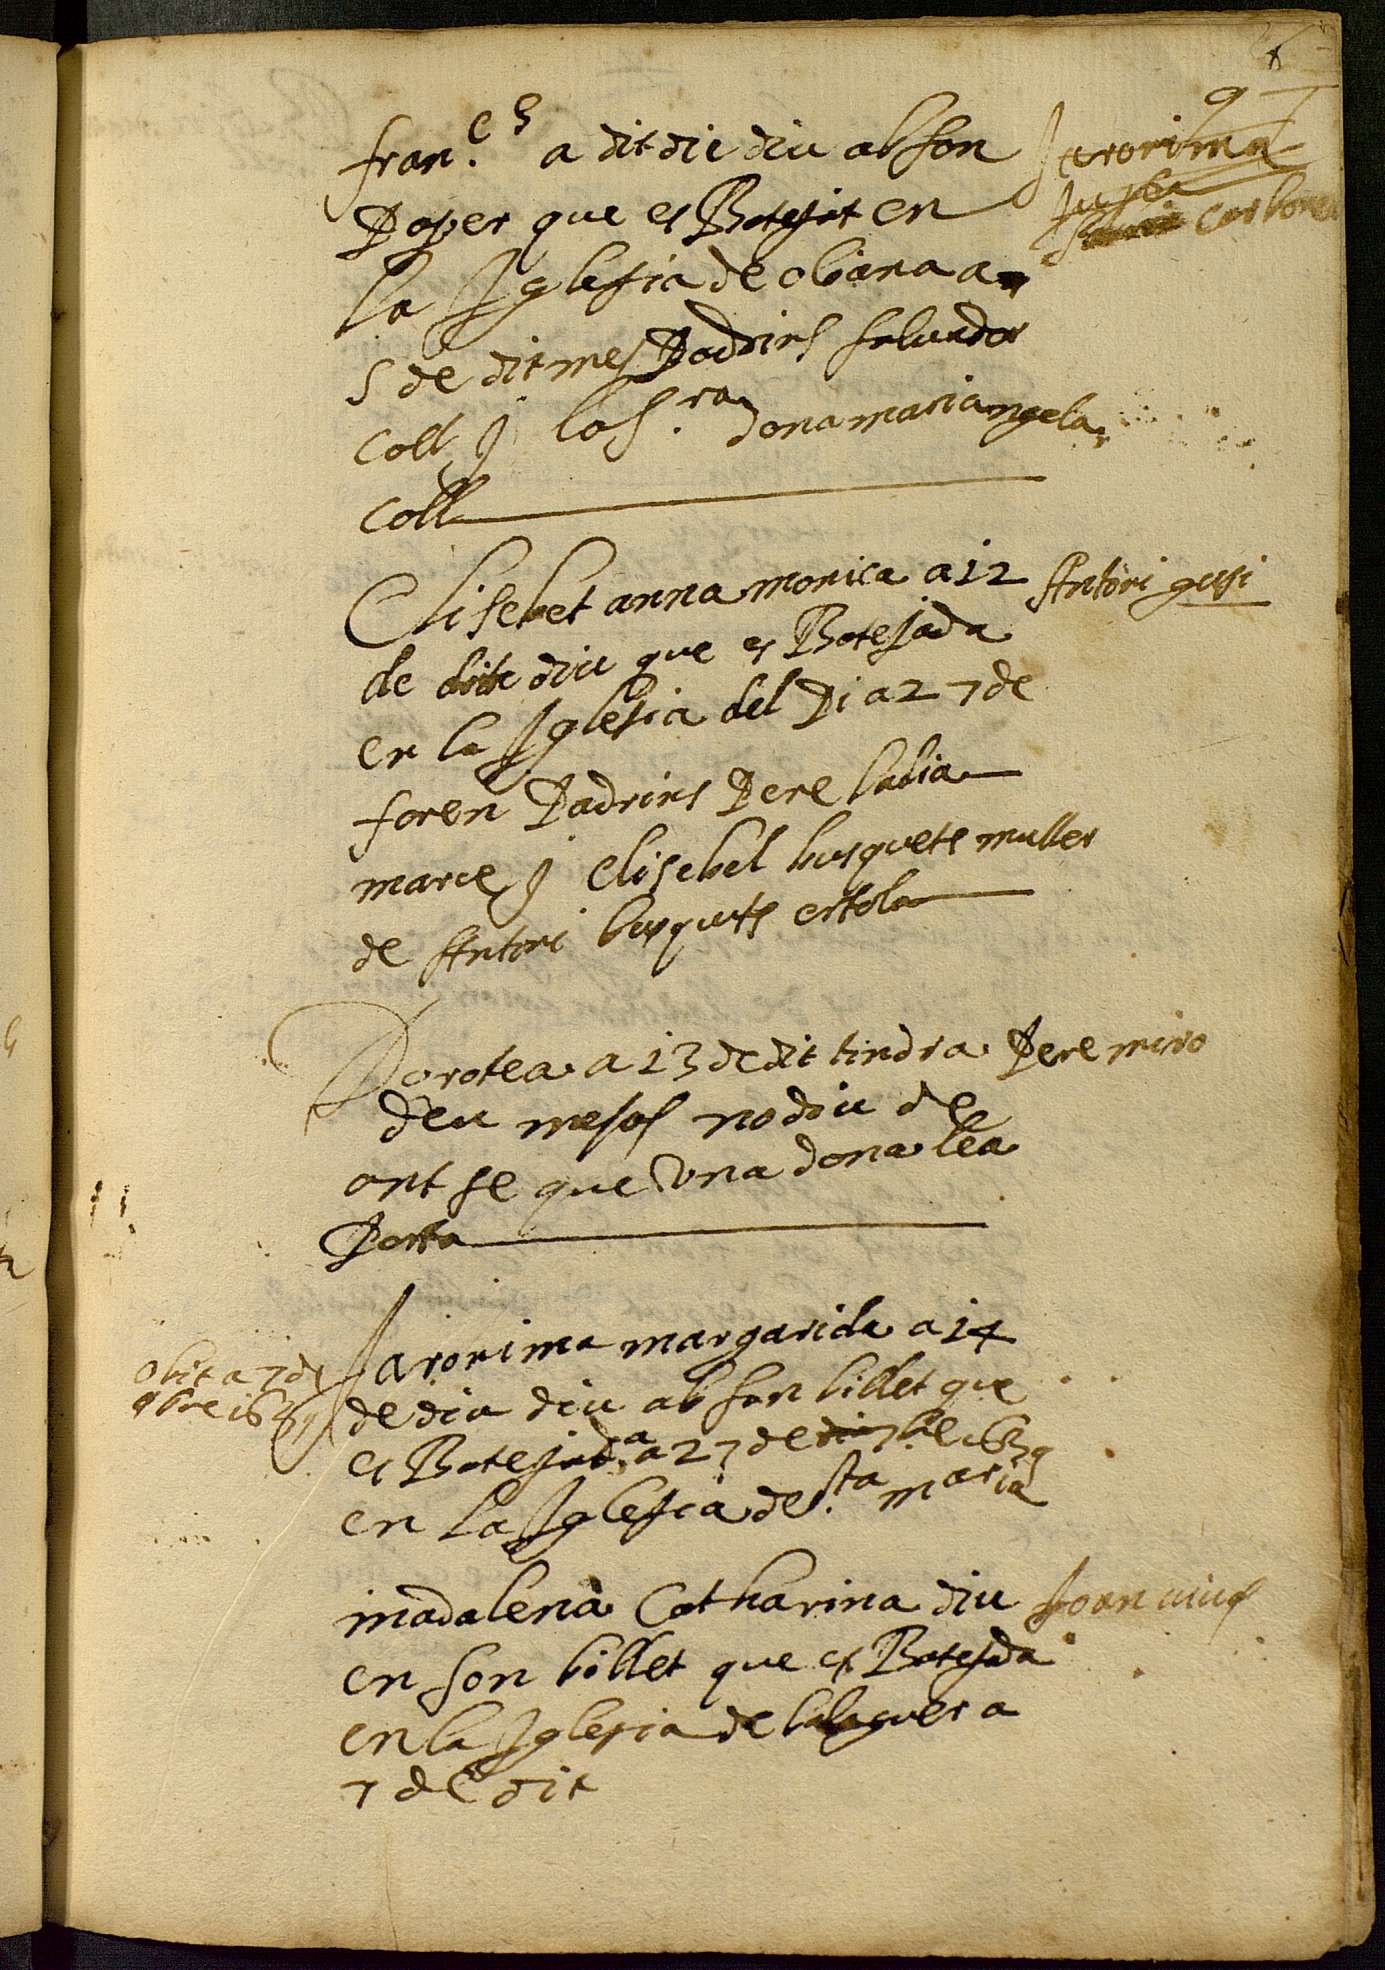 9
fran.ch a dit die diu ab son
Paper que es Batejat en
la Iglesia de obiana a
5 de dit mes Padrins salvador
Coll y la S.ra dona mariangela
Coll
Jaronima
Carbonel
Elisebet anna monica a 12
de dit diu que es Batejada
en la Iglesia del Pi a 27 de
foren Padrins Pere
y Elisebet busquets muller
de Antoni busquets
Antoni gusi
Dorotea a 13 de dit tindra
deu mesos no diu de
ont se que una dona lea
Porta
Pere miro
Jaronima margarida a 14
de diu diu ab son billet que
es Batejada a 27 de 7bre 1639
en la Iglesia de S.ta maria
obit a 7 de
madalena Catharina diu
en son billet que es Batejada
en la Iglesia de balaguer a
7 de dit
Joan